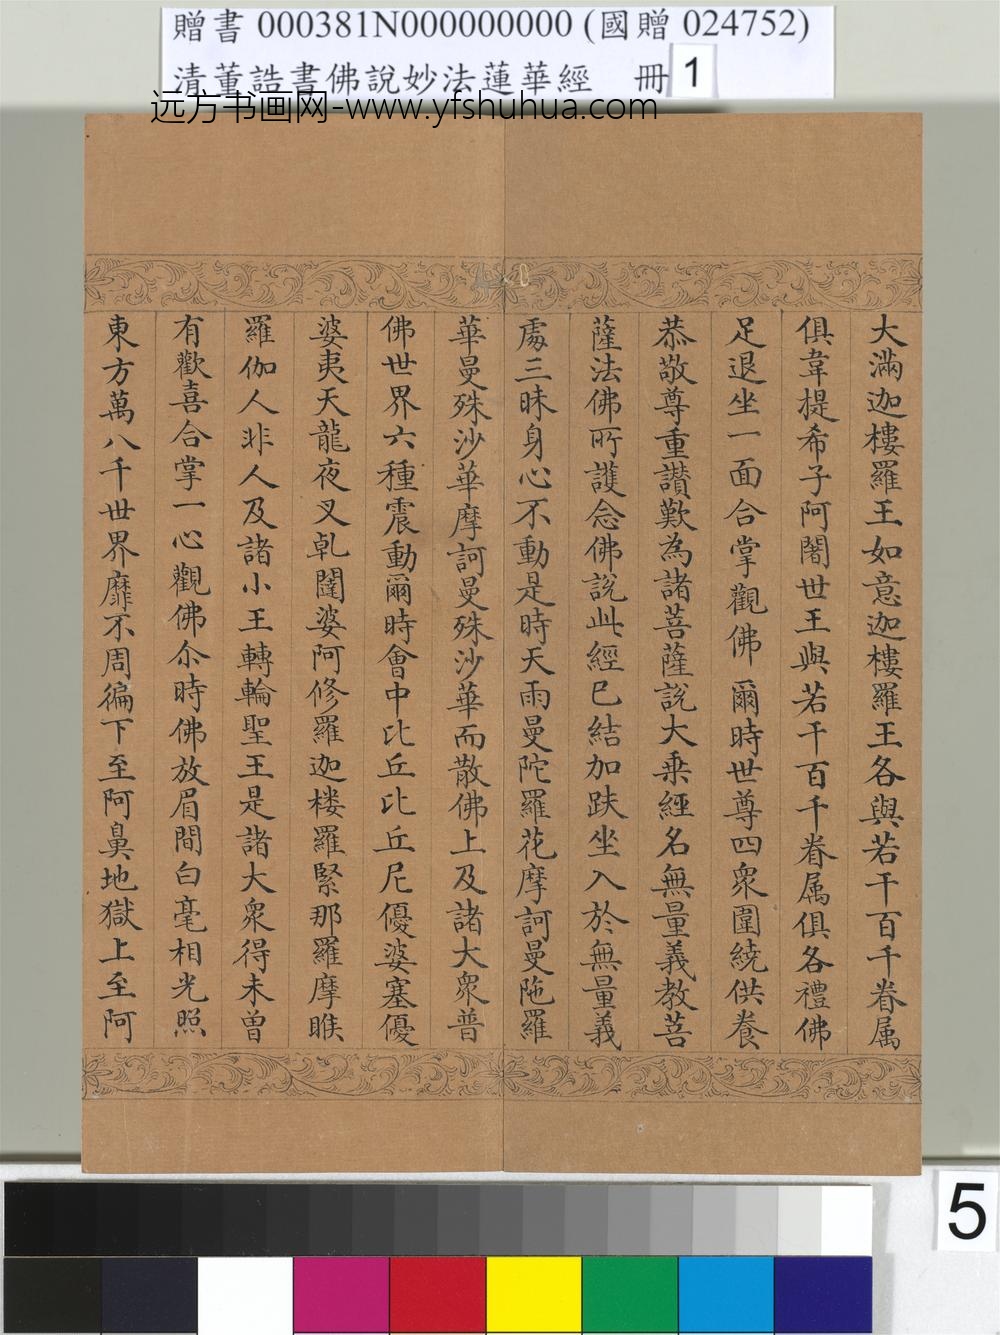 贈書 000381N000000000 (國贈 024752)
清董誥書佛說妙法蓮華經 冊 1
远方书画网-www.yfshuhua.com
大滿迦樓羅王如意迦樓羅王各與若干百千眷属
俱韋提希子阿闍世王與若干百千眷属俱各禮佛
足退坐一面合掌觀佛爾時世尊四衆圍繞供養
恭敬尊重讃歎為諸菩薩說大乗經名無量義教菩
薩法佛所護念佛說此經已結加趺坐入於無量義
處三昧身心不動是時天雨曼陀羅花摩訶曼陁羅
華曼殊沙華摩訶曼殊沙華而散佛上及諸大衆普
佛世界六種震動爾時會中比丘比丘尼優婆塞優
婆夷天龍夜叉乹闥婆阿修羅迦楼羅緊那羅摩睺
羅伽人非人及諸小王轉輪聖王是諸大衆得未曽
有歡喜合掌一心觀佛尒時佛放眉間白毫相光照
東方萬八千世界靡不周徧下至阿鼻地獄上至阿
5